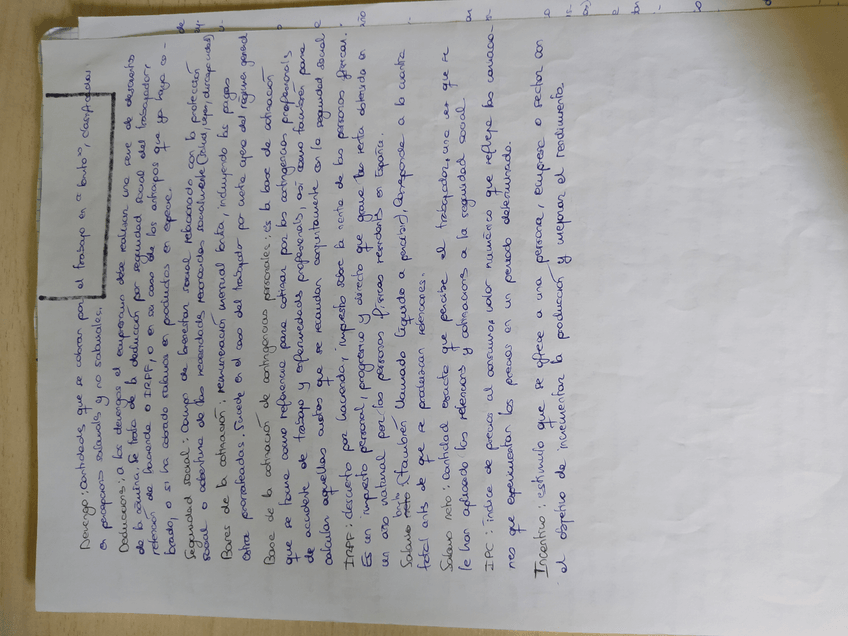 Devengo: cantidades que se cobran por el trabajo en "bruto", clasificadas
en percepciones salariales y no salariales.
Deducciones: a los devengos el empresario debe realizar una serie de descuentos
de la nómina. Se trata de la deducción por seguridad social del trabajador,
retención de hacienda o IRPF, o en su caso de los anticipos que ya haya co-
brado, o si ha cobrado salarios en productos en especie.
Seguridad social: campo de bienestar social relacionado con la protección
social o cobertura de las necesidades reconocidas socialmente (salud, vejez, discapacidad)
Bases de la cotización: remuneración mensual bruta, incluyendo las pagas
extra prorrateadas. Sucede en el caso del trabajador por cuenta ajena del régimen general
Base de la cotización de contingencias personales: es la base de cotización
que se toma como referencia para cotizar por las contingencias profesionales
de accidente de trabajo y enfermedades profesionales, así como también para
calcular aquellas cuotas que se recaudan conjuntamente con la seguridad social
IRPF: descuento por hacienda, impuesto sobre la renta de las personas físicas.
Es un impuesto personal, progresivo y directo que grava la renta obtenida en
un año natural por las personas físicas residentes en España.
Salario bruto (también llamado líquido a percibir), Corresponde a la cuantía
total antes de que se produzcan retenciones.
Salario neto: cantidad exacta que percibe el trabajador, una vez que se
le han aplicado las retenciones y cotizaciones a la seguridad social.
IPC: índice de precios al consumo, valor numérico que refleja las variacio-
nes que experimentan los precios en un periodo determinado.
Incentivo: estímulo que se ofrece a una persona, empresa o sector con
el objetivo de incrementar la producción y mejorar el rendimiento